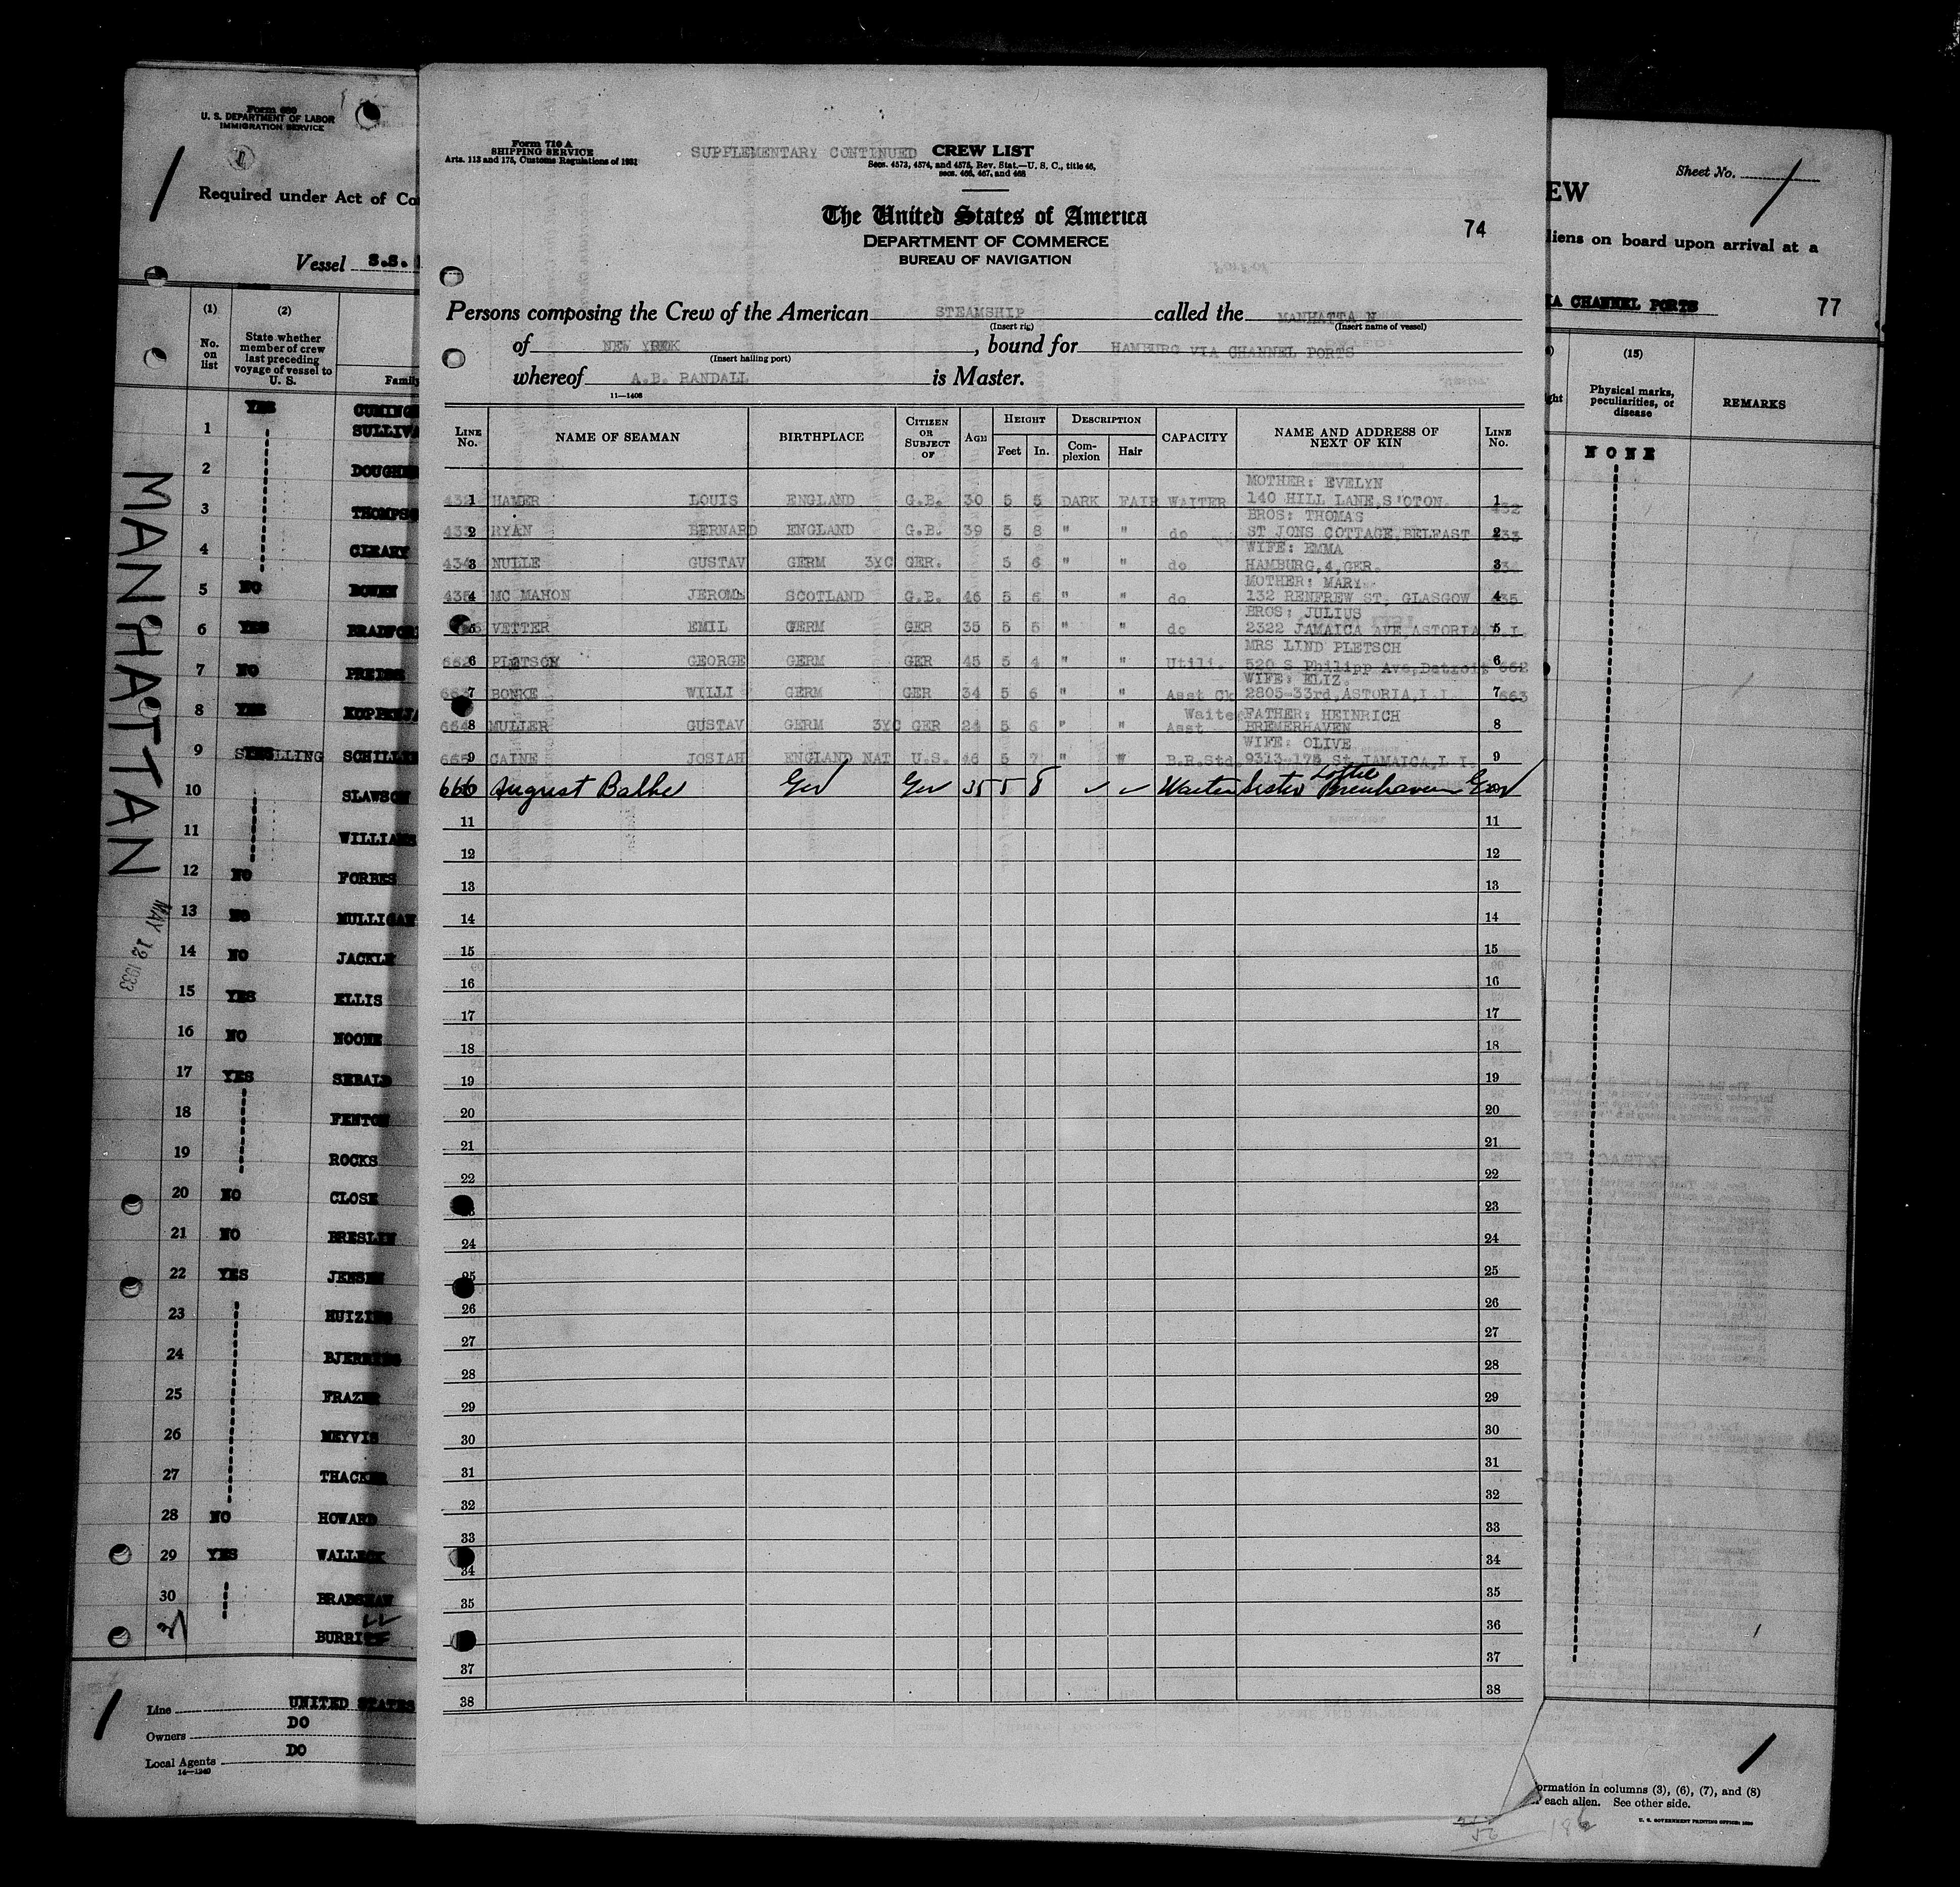 Form 680
U. S. DEPARTMENT OF LABOR
IMMIGRATION SERVICE
Required under Act of
Vessel S.S.
(1) (2)
No. on list
State whether member of crew last preceding voyage of vessel to U. S.
YES
1 SULLIV
2
3
4 CLEARY
5 NO BOWEN
6 YES
7 NO
8 YES
9
10 SLAWSON
11
12 NO FORBES
13 NO MULLIGAN
14 NO JACKLE
15 YES ELLIS
16 NO NOONE
17 YES SEBALD
18 FENTON
19 ROCKS
20 NO CLOSE
21 NO BRESLIN
22 YES JENSEN
23
24
25 FRAZER
26 MEYVIS
27 THACKER
28 NO HOWARD
29 YES
30 BRADSHAW
31
Line UNITED STATES
Owners DO
Local Agents DO
14—1240
MANHATTAN
MAY 12 1933
Form 710 A
SHIPPING SERVICE
Arts. 113 and 175, Customs Regulations of 1931
SUPPLEMENTARY CONTINUED CREW LIST
Secs. 4573, 4574, and 4575, Rev. Stat.—U. S. C., title 46,
secs. 466, 467, and 468
The United States of America
DEPARTMENT OF COMMERCE
BUREAU OF NAVIGATION
74
Persons composing the Crew of the American STEAMSHIP called the MANHATTA N
(Insert rig) (Insert name of vessel)
of NEW YROK, bound for HAMBURG VIA CHANNEL PORTS
(Insert hailing port)
whereof A.B. RANDALL is Master.
11—1406
LINE No. NAME OF SEAMAN BIRTHPLACE CITIZEN OR SUBJECT OF AGE HEIGHT Feet In. DESCRIPTION Complexion Hair CAPACITY NAME AND ADDRESS OF NEXT OF KIN LINE No.
MOTHER: EVELYN
432 1 HAMER LOUIS ENGLAND G.B. 30 5 5 DARK FAIR WAITER 140 HILL LANE,S'OTON. 1 432
BROS: THOMAS
433 2 RYAN BERNARD ENGLAND G.B. 39 5 8 " " do ST JONS COTTAGE,BELFAST 2 433
WIFE: EMMA
434 3 NULLE GUSTAV GERM 3YC GER. 5 6 " " do HAMBURG,4,GER. 3 434
MOTHER: MARY
435 4 MC MAHON JEROME SCOTLAND G.B. 46 5 6 " " do 132 RENFREW ST, GLASGOW 4 435
BROS: JULIUS
5 VETTER EMIL GERM GER 35 5 5 " " do 2322 JAMAICA AVE,ASTORIA,L.I. 5
MRS LIND PLETSCH
662 6 PLETSCH GEORGE GERM GER 45 5 4 " " Utili. 520 S Philipp Ave,Detroit 6 662
WIFE: ELIZ.
663 7 BONKE WILLI GERM GER 34 5 6 " " Asst Ck 2805-33rd,ASTORIA,L.I. 7 663
Waiter FATHER: HEINRICH
664 8 MULLER GUSTAV GERM 3YC GER 24 5 6 " " Asst BREMERHAVEN 8
WIFE: OLIVE
665 9 CAINE JOSIAH ENGLAND NAT U.S. 46 5 7 " " B.R.Std. 9313-175 St.JAMAICA,L.I. 9
Lottie
666 10 August Balke Ger Ger 35 5 8 Waiter Sister Bremhaven Ger 10
11 11
12 12
13 13
14 14
15 15
16 16
17 17
18 18
19 19
20 20
21 21
22 22
23
24 24
25 25
26 26
27 27
28 28
29 29
30 30
31 31
32 32
33 33
34 34
35 35
36
37 37
38 38
EW
Sheet No. 1
liens on board upon arrival at a
VIA CHANNEL PORTS 77
(15)
Physical marks, peculiarities, or disease
REMARKS
NONE
ormation in columns (3), (6), (7), and (8)
each alien. See other side.
U. S. GOVERNMENT PRINTING OFFICE
56
186